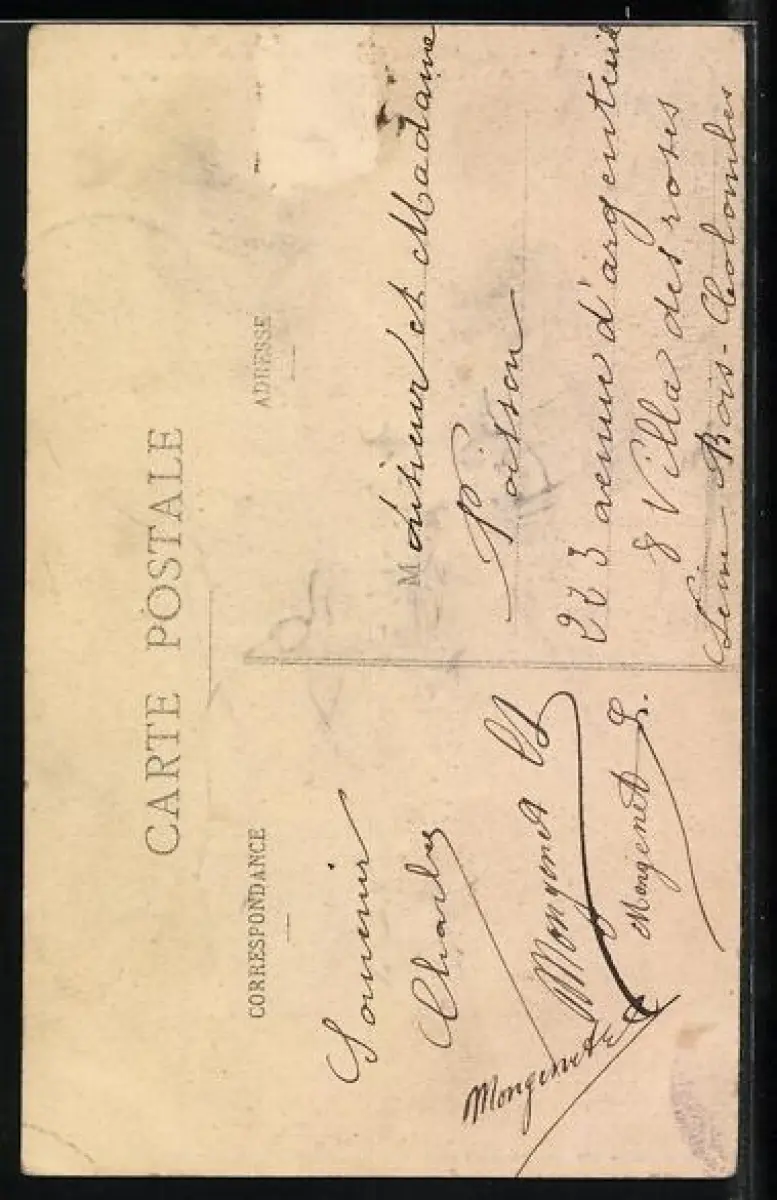 CARTE POSTALE
CORRESPONDANCE
Souvenir
Charles
Mongenet
Mongenet
Mongenet L.
ADRESSE
Monsieur et Madame
Poisson
223 avenue d'argenteuil
8 Villa des roses
Seine Bois-Colombes